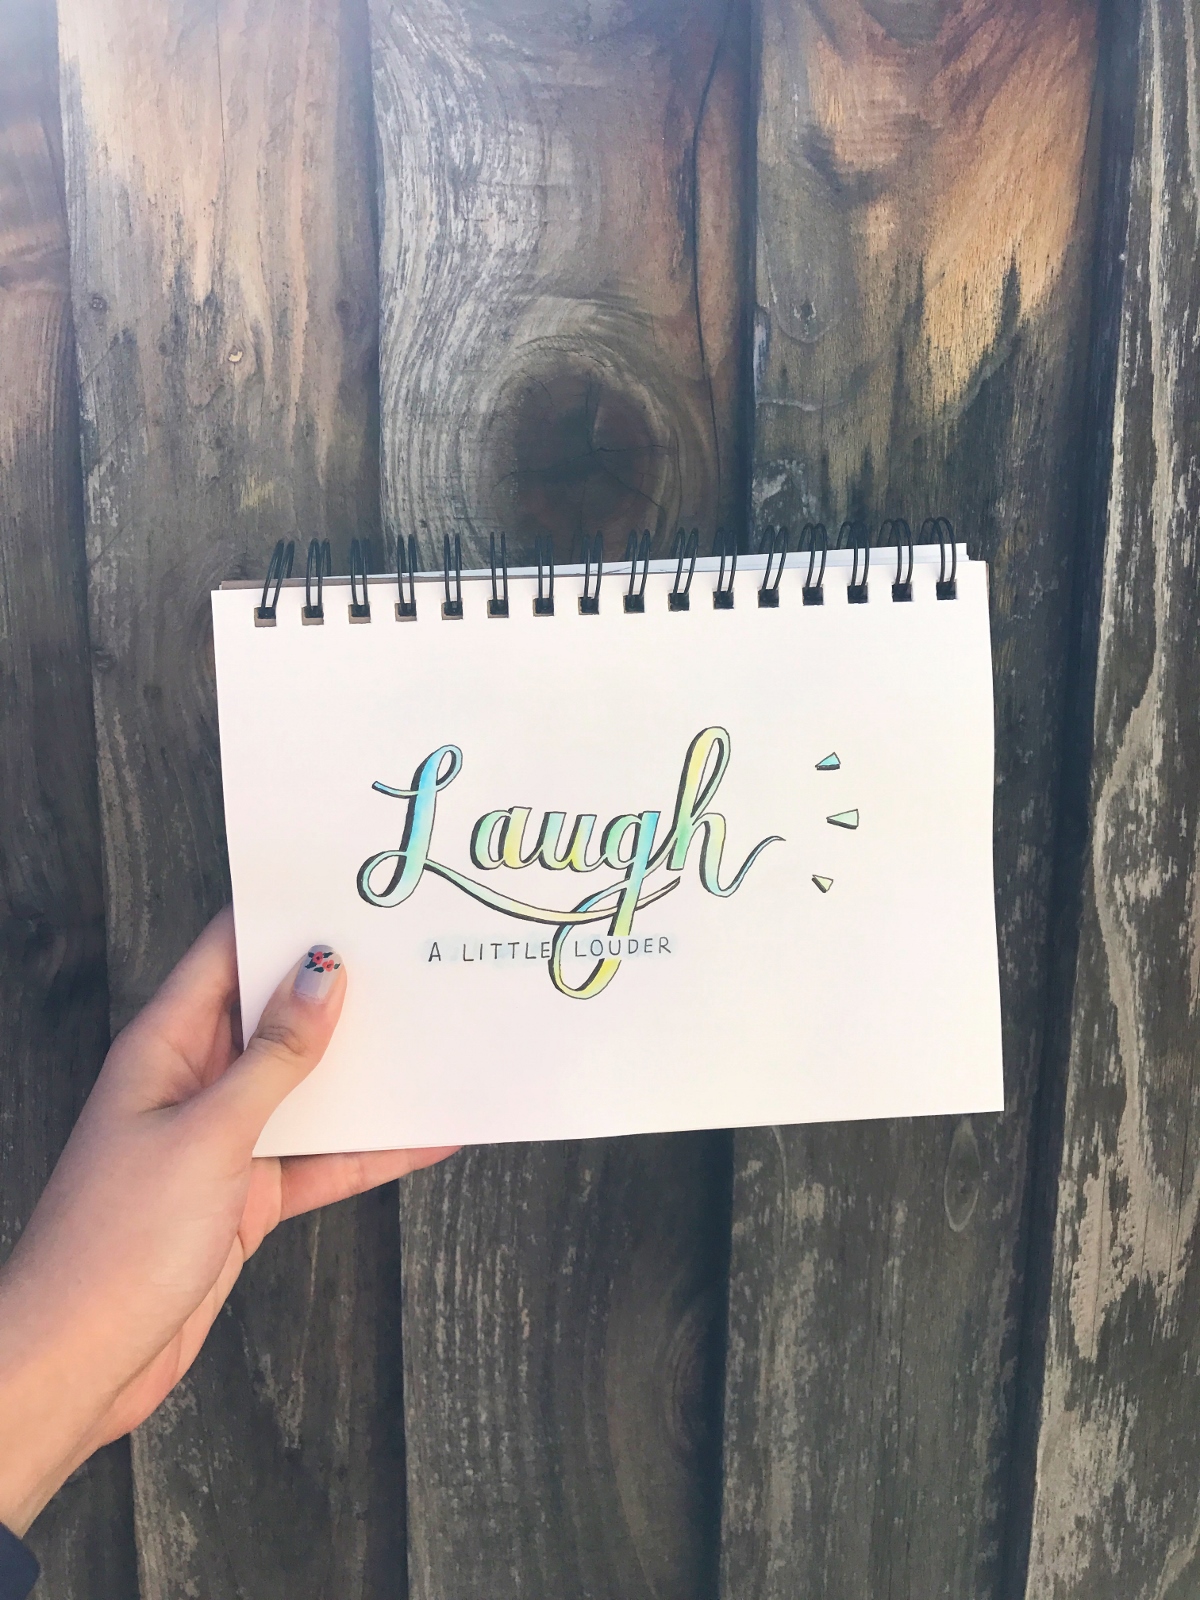 Laugh
A LITTLE LOUDER